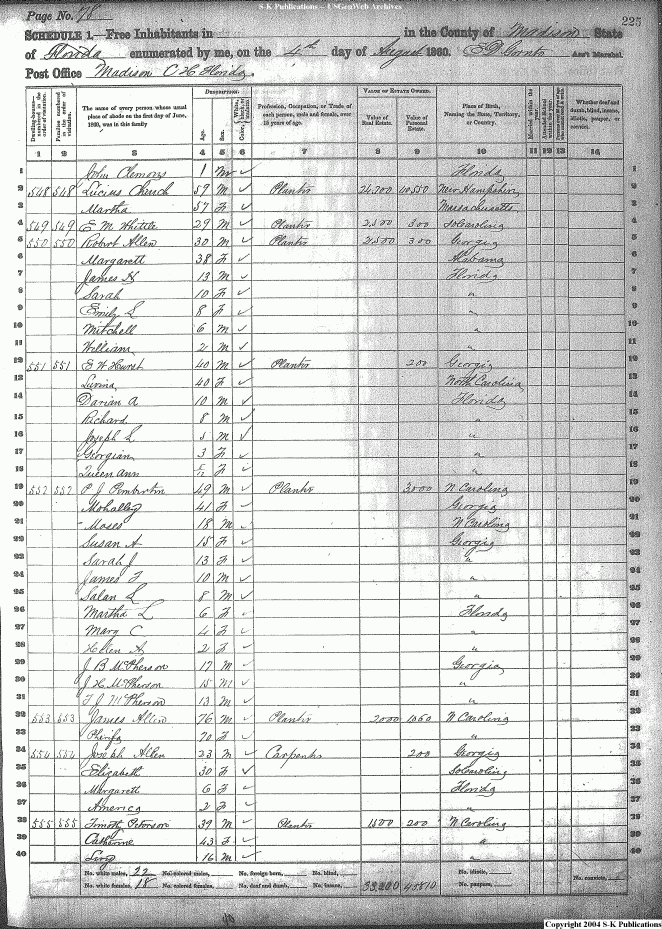 S-K Publications -- USGenWeb Archives
Page No. 78
225
SCHEDULE 1.—Free Inhabitants in in the County of Madison State
of Florida enumerated by me, on the 4th day of August 1860. Ass't Marshal.
Post Office Madison C H Florida
Dwelling-houses—numbered in the order of visitation. Families numbered in the order of visitation. The name of every person whose usual place of abode on the first day of June, 1860, was in this family. DESCRIPTION. Age. Sex. Color, Profession, Occupation, or Trade of each person, male and female, over 15 years of age. VALUE OF ESTATE OWNED. Value of Real Estate. Value of Personal Estate. Place of Birth, Naming the State, Territory, or Country. Married within the year. Whether deaf and dumb, blind, insane, idiotic, pauper, or convict.
1 2 3 4 5 6 7 8 9 10 11 12 13 14
1 John Clemons 1 m ✓ Florida 1
2 548 548 Lucius Church 59 M ✓ Planter New Hampshire 2
3 Martha 57 F ✓ Massachusetts 3
4 549 549 E M Whittle 29 M ✓ Planter 2500 300 So Carolina 4
5 550 550 Robert Allen 30 M ✓ Planter 2500 300 Georgia 5
6 Margarett 38 F ✓ Alabama 6
7 James H 13 M ✓ Florida 7
8 Sarah 10 F ✓ " 8
9 Emily S 8 F ✓ " 9
10 Mitchell 6 M ✓ " 10
11 William 2 M ✓ " 11
12 551 551 E W Hurst 40 M ✓ Planter 200 Georgia 12
13 Luvina 40 F ✓ North Carolina 13
14 Darian A 10 M ✓ Florida 14
15 Richard 8 M ✓ " 15
16 Joseph L 5 M ✓ " 16
17 Georgian 3 F ✓ " 17
18 Queen Ann F ✓ " 18
19 552 552 P J Pemberton 49 M ✓ Planter 3000 N Carolina 19
20 Mohalley 41 F ✓ Georgia 20
21 Moses 18 M ✓ N Carolina 21
22 Susan A 15 F ✓ Georgia 22
23 Sarah J 13 F ✓ " 23
24 James F 10 M ✓ " 24
25 Salan S 8 M ✓ " 25
26 Martha L 6 F ✓ Florida 26
27 Mary C 4 F ✓ " 27
28 Helen A 2 F ✓ " 28
29 J B McPherson 17 M ✓ Georgia 29
30 J H McPherson 15 M ✓ " 30
31 T J McPherson 13 M ✓ " 31
32 553 553 James Allen 76 M ✓ Planter 2000 1060 N Carolina 32
33 70 F ✓ " 33
34 554 554 Joseph Allen 23 M ✓ Carpenter 200 Georgia 34
35 Elizabeth 30 F ✓ So Carolina 35
36 Margarett 6 F ✓ Florida 36
37 America 2 F ✓ " 37
38 555 555 Timothy Peterson 39 M ✓ Planter 1500 200 N Carolina 38
39 Catherine 43 F ✓ " 39
40 16 M ✓ " 40
No. white males, 22 No. colored males, No. foreign born, No. blind, No. idiotic, No. convicts,
No. white females, 18 No. colored females, No. deaf and dumb, No. insane, No. paupers,
Copyright 2004 S-K Publications